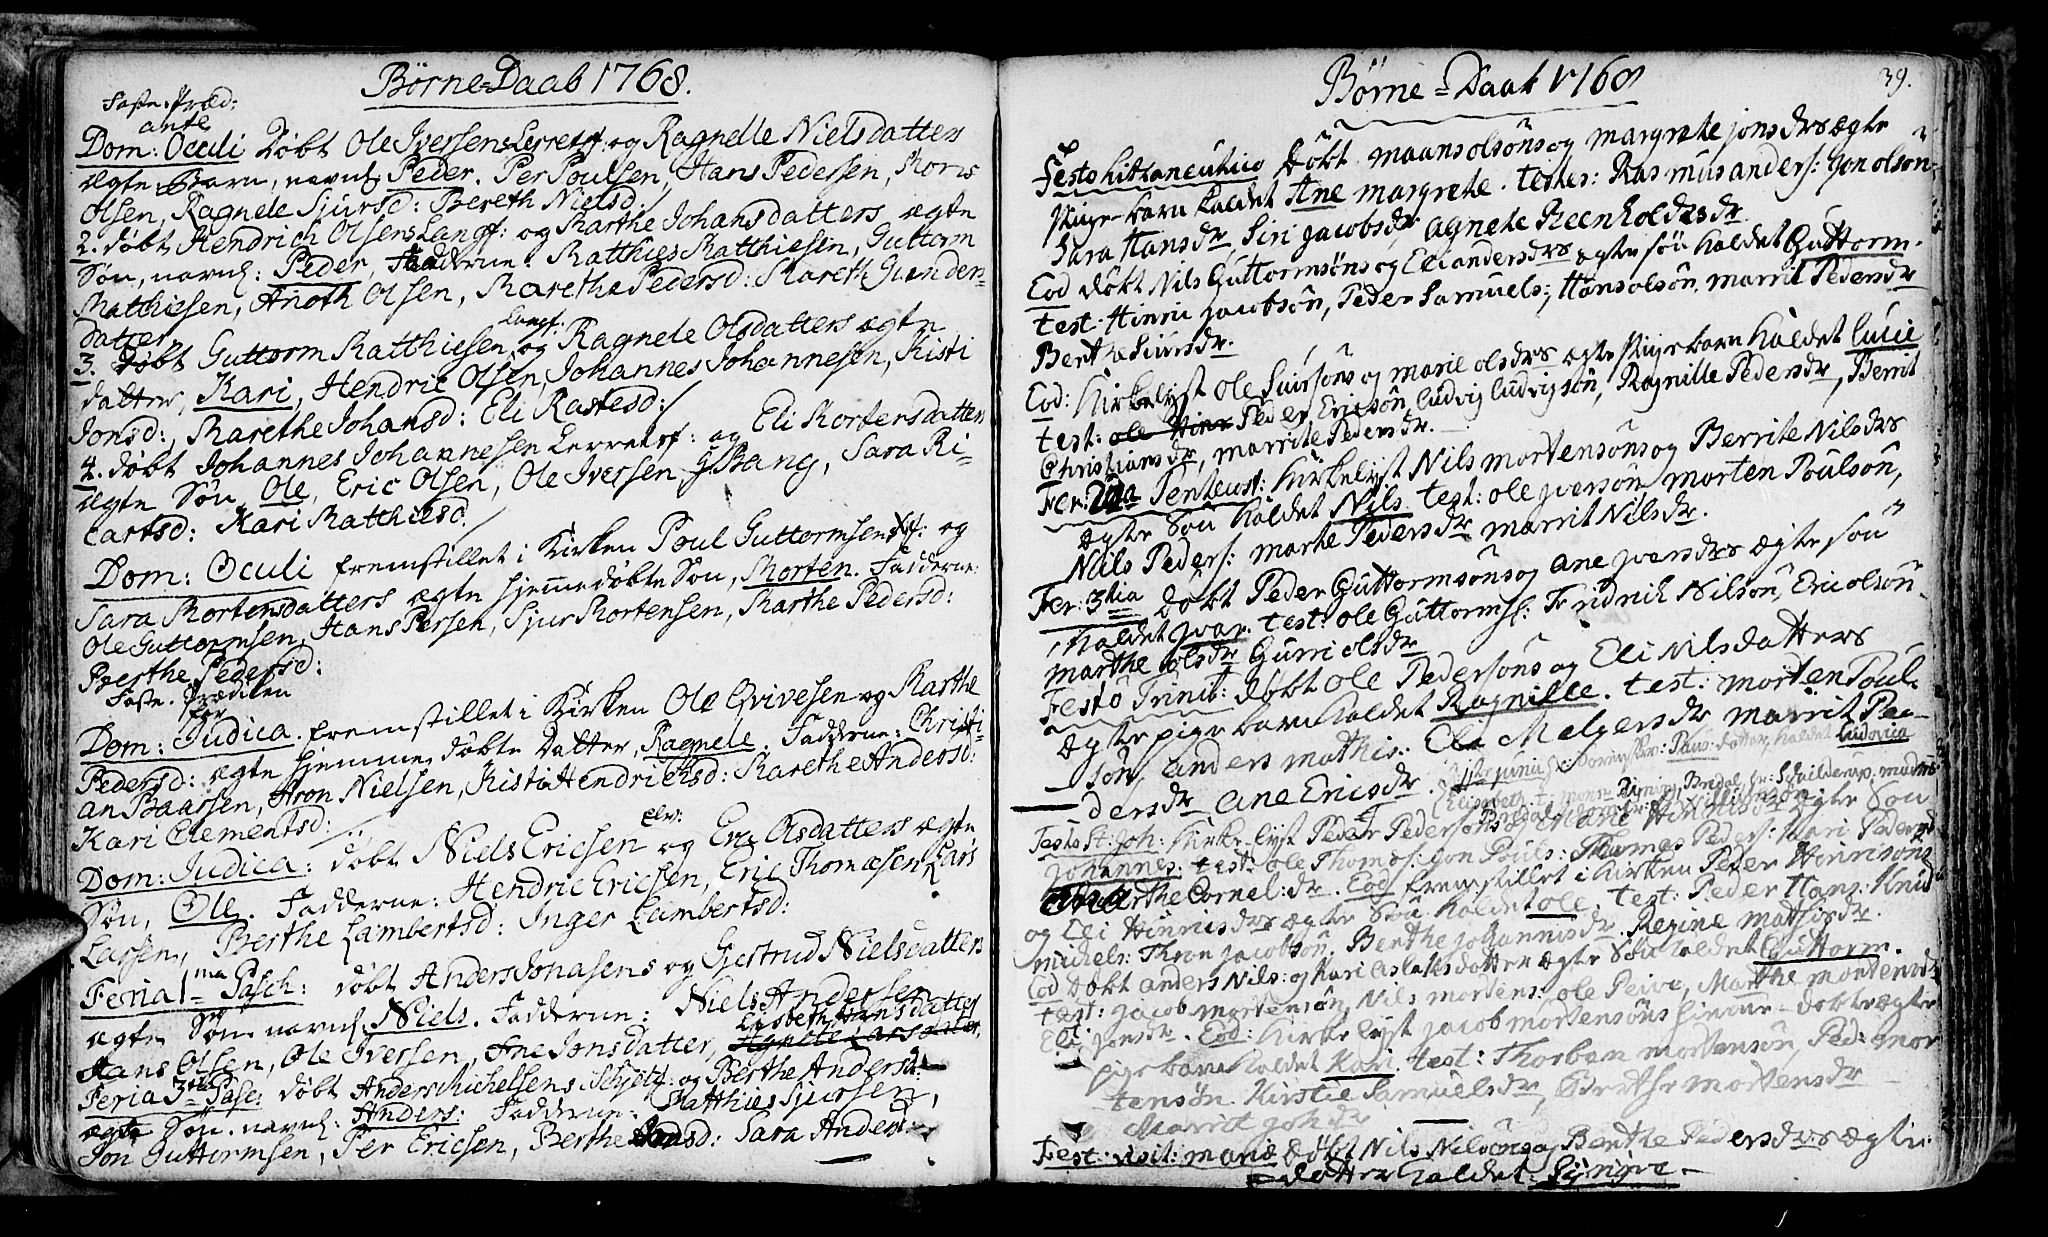 Børne-Daab 1768.
Faste-Præd:
ante
Dom: Oculi døbt Ole Iversens Lerretsf: og Ragnelle Nielsdatters
ægte Barn, navnl Peder. Per Poulsen, Hans Pedersen, Mons
Olsen, Ragnele Sjursd: Bereth Nielsd:/
2. døbt Hendrich Olsens Langf: og Marthe Johansdatters ægte
Søn, navnl: Peder, Fadderne: Matthies Matthiesen, Guttorm
Matthiesen, Anoth Olsen, Marethe Pedersd: Mareth Gunder-
datter
3. døbt Guttorm Matthiesen Langf: og Ragnele Olsdatters ægte
datter, Kari, Hendric Olsen, Johannes Johannesen, Kisti
Jonsd:, Marethe Johansd: Eli Rastesd:/
4. døbt Johannes Johannesen Lerretsf: og Eli Mortensdatters
ægte Søn, Ole, Eric Olsen, Ole Iversen, J: Bang, Sara Ri-
cartsd: Kari Matthiesd./
Dom: Oculi fremstillet i Kirken Poul Guttormsens og
Sara Mortensdatters ægte hjemmedøbte Søn, Morten. Fadderne:
Ole Guttormsen, Hans Persen, Sjur Mortensen, Marthe Pedersd:
Berthe Pedersd:
Faste-Prædiken
før
Dom: Judica. fremstillet i Kirken Ole Qvivesen og Marthe
Pedersd: ægte hjemmedøbte datter, Ragnele. Fadderne: Christi-
an Baarsen, Aron Nielsen, Kisti Hendricksd: Marethe Andersd:
Kari Clementsd:/
Dom: Judica: døbt Niels Ericsen elv: og Eve Olsdatters ægte
Søn, Ole. Fadderne: Hendric Ericsen, Eric Thomasen, Lars
Larsen, Berthe Lambertsd: Inger Lambertsd:
Feria 1ma Pasch: døbt Anders Jonasens og Gjertrud Nielsdatters
ægte Søn navnl Niels. Fadderne: Niels Andersen,
Hans Olsen, Ole Iversen, Ane Jonsdatter, Elisbeth Hansdatter
Feria 3tia Pasc: døbt Anders Michelsens Schjøtz: og Berthe Andersd:
ægte Søn. navnl: Anders: Fadderne: Matthies Sjursen,
Jon Guttormsen, Per Ericsen, Berthe Jonsd: Sara Andersd:
Børne-Daab 1768
39.
Døbt maans olsöns og margrete jonsdrs ægte
pige-barn kaldet Ane margrete. testes: Rasmus anders: Jon olsön
Sara Hansdr Siri jacobsdr agnete Reenholdesdr
Eod døbt Nils Guttormsöns og Eli andersdrs ægte sön kaldet Guttorm.
test: Hinric jacobsön, Peder Samuels: Hans olsön, marrit Pedersdr
Berthe Siursdr.
Eod: Kirkelyst ole Siursöns og marie olsdrs ægte pige barn kaldet Lucie
test: ole Hinr Peder Ericsön, Ludvig Ludvigsön, Ragnille Pedersdr, Berrit
Christiansdr, marrite Pedersdr.
Fer: 2da Pentecost: Kirkelyst Nils mortensöns og Berrite Nilsdrs
ægte Sön kaldet Nils test: ole jversön morten Poulsön,
Nils Peders: marte Pedersdr marrit Nilsdr.
Fer: 3tia døbt Peder Guttormsöns og Ane jversdrs ægte sön
kaldet jvar. test: ole Guttorms: Fridrich Nilsön, Eric olsön
marthe olsdr Gurri olsdr
Festo Trinit: døbt ole Pedersöns og Eli Nilsdatters
ægte pige barn kaldet Ragnille. test: morten Poul-
sön, anders mathis: Eli Melgersdr marrit Pe-
dersdr Ane Ericsdr.
datter kaldet Ludovica
Elisabeth
Festo St: Joh: Kirke-lyst Peder Pedersöns og Marie Hinricsdrs ægte Sön
johannes. test: ole Thomes: Jon Pouls: Thomes Peders: Kari Pedersdr
Marthe Cornel: dr. Eod fremstillet i Kirken Peder Hinricsöns
og Eli Hinricsdrs ægte Sön kaldet ole. test: Peder Hans: Knud
michels: Thron jacobsön, Berthe johannisdr. Regine mathisdr.
Eod døbt anders Nils: og Kari Aslaksdotter ægte Sön kaldet Guttorm.
test: jacob mortensön, Nils mortens: ole Peive, Marthe mortensdr
Eli jonsdr. Eod: Kirke lyst jacob mortensöns hiemme-døbte ægte
pige barn kaldet Kari. test: Thorben mortensön, Ped: mor
tensön. Kirstie Samuelsdr, Berthe mortensdr
Marrit joh:dr
Fest: visit: mariæ døbt Nils Nilsöns og Berthe Pedersdrs ægte
dotter kaldet: Synnive.